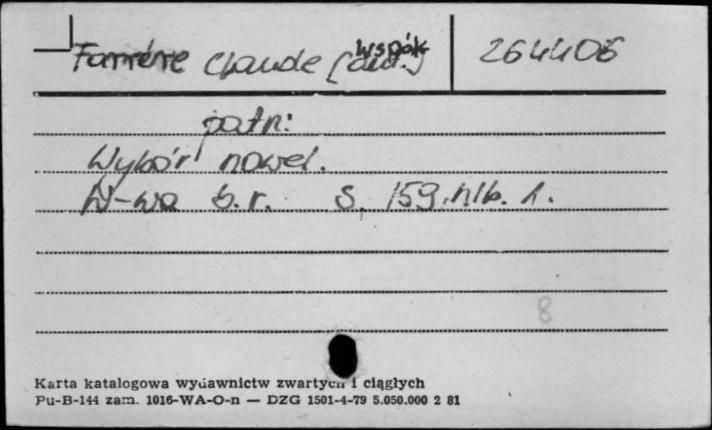 Farrére Claude (współ aut.) 264406
patrz:
Wybór nowel.
W-wa b.r. S. 159, nlb. 1.
8
Karta katalogowa wydawnictw zwartych i ciągłych
Pu-B-144 zam. 1016-WA-O-n — DZG 1501-4-79 5.050.000 2 81